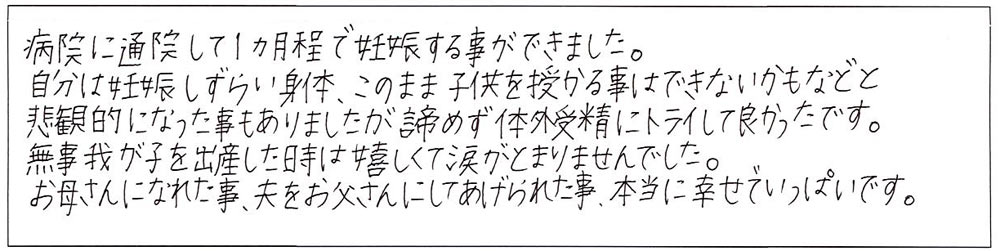 病院に通院して1ヵ月程で妊娠する事ができました。
自分は妊娠しずらい身体、このまま子供を授かる事はできないかもなどと
悲観的になった事もありましたが諦めず体外受精にトライして良かったです。
無事我が子を出産した日時は嬉しくて涙がとまりませんでした。
お母さんになれた事、夫をお父さんにしてあげられた事、本当に幸せでいっぱいです。